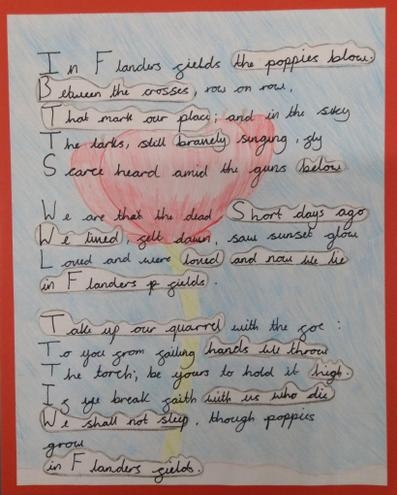 In Flanders fields the poppies blow.
Between the crosses, row on row,
That mark our place; and in the sky
The larks, still bravely singing, fly
Scarce heard amid the guns below
We are that the dead Short days ago
We lived, felt dawn, saw sunset glow
Loved and were loved and now we lie
in Flanders p fields.
Take up our quarrel with the foe:
To you from failing hands we throw
The torch; be yours to hold it high.
If ye break faith with us who die
We shall not sleep, though poppies
grow
in Flanders fields.